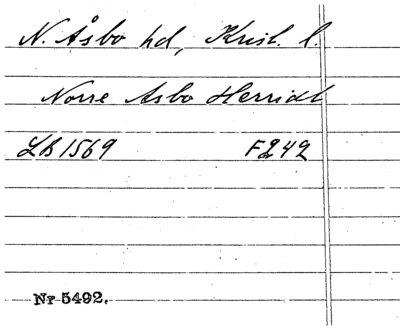 N. Åsbo hd, Krist. l.
Norre Asbo Herridt
LB 1569 F242
Nr 5492.